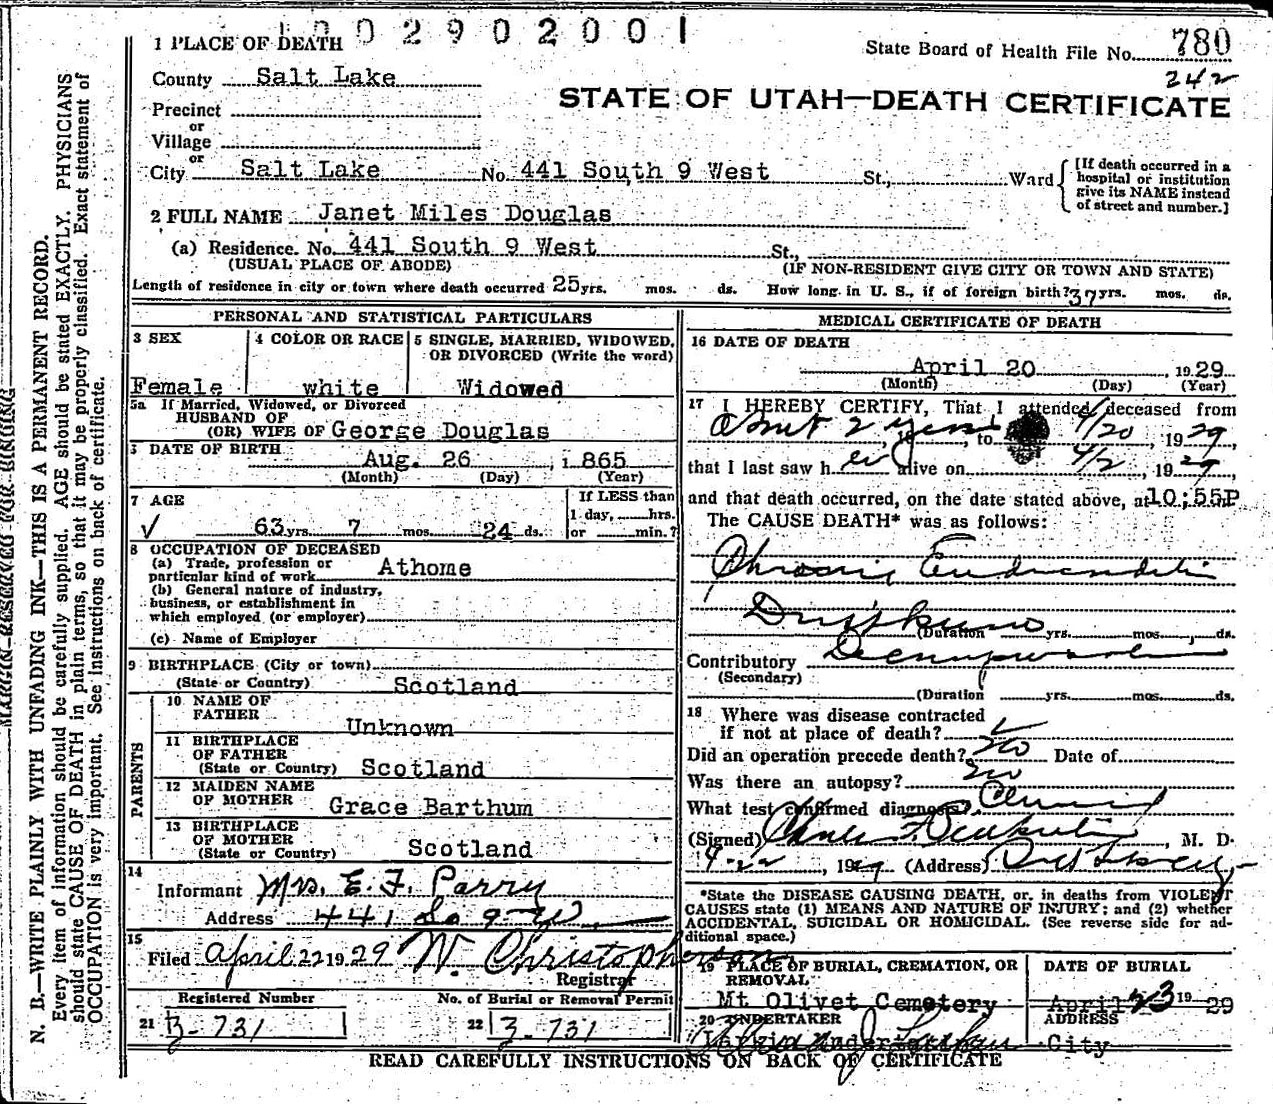 1002902001
1 PLACE OF DEATH
State Board of Health File No. 780
242
County Salt Lake
STATE OF UTAH—DEATH CERTIFICATE
Precinct
or
Village
or
City Salt Lake No. 441 South 9 West St., Ward
[If death occurred in a
hospital or institution
give its NAME instead
of street and number.]
2 FULL NAME Janet Miles Douglas
(a) Residence. No. 441 South 9 West St.,
(USUAL PLACE OF ABODE) (IF NON-RESIDENT GIVE CITY OR TOWN AND STATE)
Length of residence in city or town where death occurred 25 yrs. mos. ds. How long in U. S., if of foreign birth? 37 yrs. mos. ds.
PERSONAL AND STATISTICAL PARTICULARS
3 SEX
Female
4 COLOR OR RACE
white
5 SINGLE, MARRIED, WIDOWED,
OR DIVORCED (Write the word)
Widowed
5a If Married, Widowed, or Divorced
HUSBAND OF
(OR) WIFE OF George Douglas
DATE OF BIRTH
Aug. 26, 1865
(Month) (Day) (Year)
7 AGE
If LESS than
1 day, hrs.
or min.?
63 yrs. 7 mos. 24 ds.
8 OCCUPATION OF DECEASED
(a) Trade, profession or
particular kind of work Athome
(b) General nature of industry,
business, or establishment in
which employed (or employer)
(c) Name of Employer
9 BIRTHPLACE (City or town)
(State or Country) Scotland
PARENTS
10 NAME OF
FATHER Unknown
11 BIRTHPLACE
OF FATHER
(State or Country) Scotland
12 MAIDEN NAME
OF MOTHER Grace Barthum
13 BIRTHPLACE
OF MOTHER
(State or Country) Scotland
14
Informant Mrs. E. F. Parry
Address 441 So 9 W
15
Filed April 22 1929 W. Christopherson
Registrar
Registered Number No. of Burial or Removal Permit
21 B-731 22 B-731
MEDICAL CERTIFICATE OF DEATH
16 DATE OF DEATH
April 20, 1929
(Month) (Day) (Year)
17 I HEREBY CERTIFY, That I attended deceased from
about 2 years, to 4/20, 1929,
that I last saw her alive on 4/2, 1929,
and that death occurred, on the date stated above, at 10:55P
The CAUSE DEATH* was as follows:
Chronic
(Duration yrs. mos., ds.
Contributory
(Secondary)
(Duration yrs. mos. ds.
18 Where was disease contracted
if not at place of death?
Did an operation precede death? no Date of
Was there an autopsy? no
What test confirmed diagnosis? Clinical
(Signed) M. D.
4-22, 1929 (Address)
*State the DISEASE CAUSING DEATH, or, in deaths from VIOLENT
CAUSES state (1) MEANS AND NATURE OF INJURY; and (2) whether
ACCIDENTAL, SUICIDAL OR HOMICIDAL. (See reverse side for ad-
ditional space.)
19 PLACE OF BURIAL, CREMATION, OR
REMOVAL
Mt Olivet Cemetery
DATE OF BURIAL
April 23 1929
20 UNDERTAKER
ADDRESS
City
READ CAREFULLY INSTRUCTIONS ON BACK OF CERTIFICATE
MARGIN RESERVED FOR BINDING
N. B.—WRITE PLAINLY WITH UNFADING INK—THIS IS A PERMANENT RECORD.
Every item of information should be carefully supplied. AGE should be stated EXACTLY. PHYSICIANS
should state CAUSE OF DEATH in plain terms, so that it may be properly classified. Exact statement of
OCCUPATION is very important. See instructions on back of certificate.